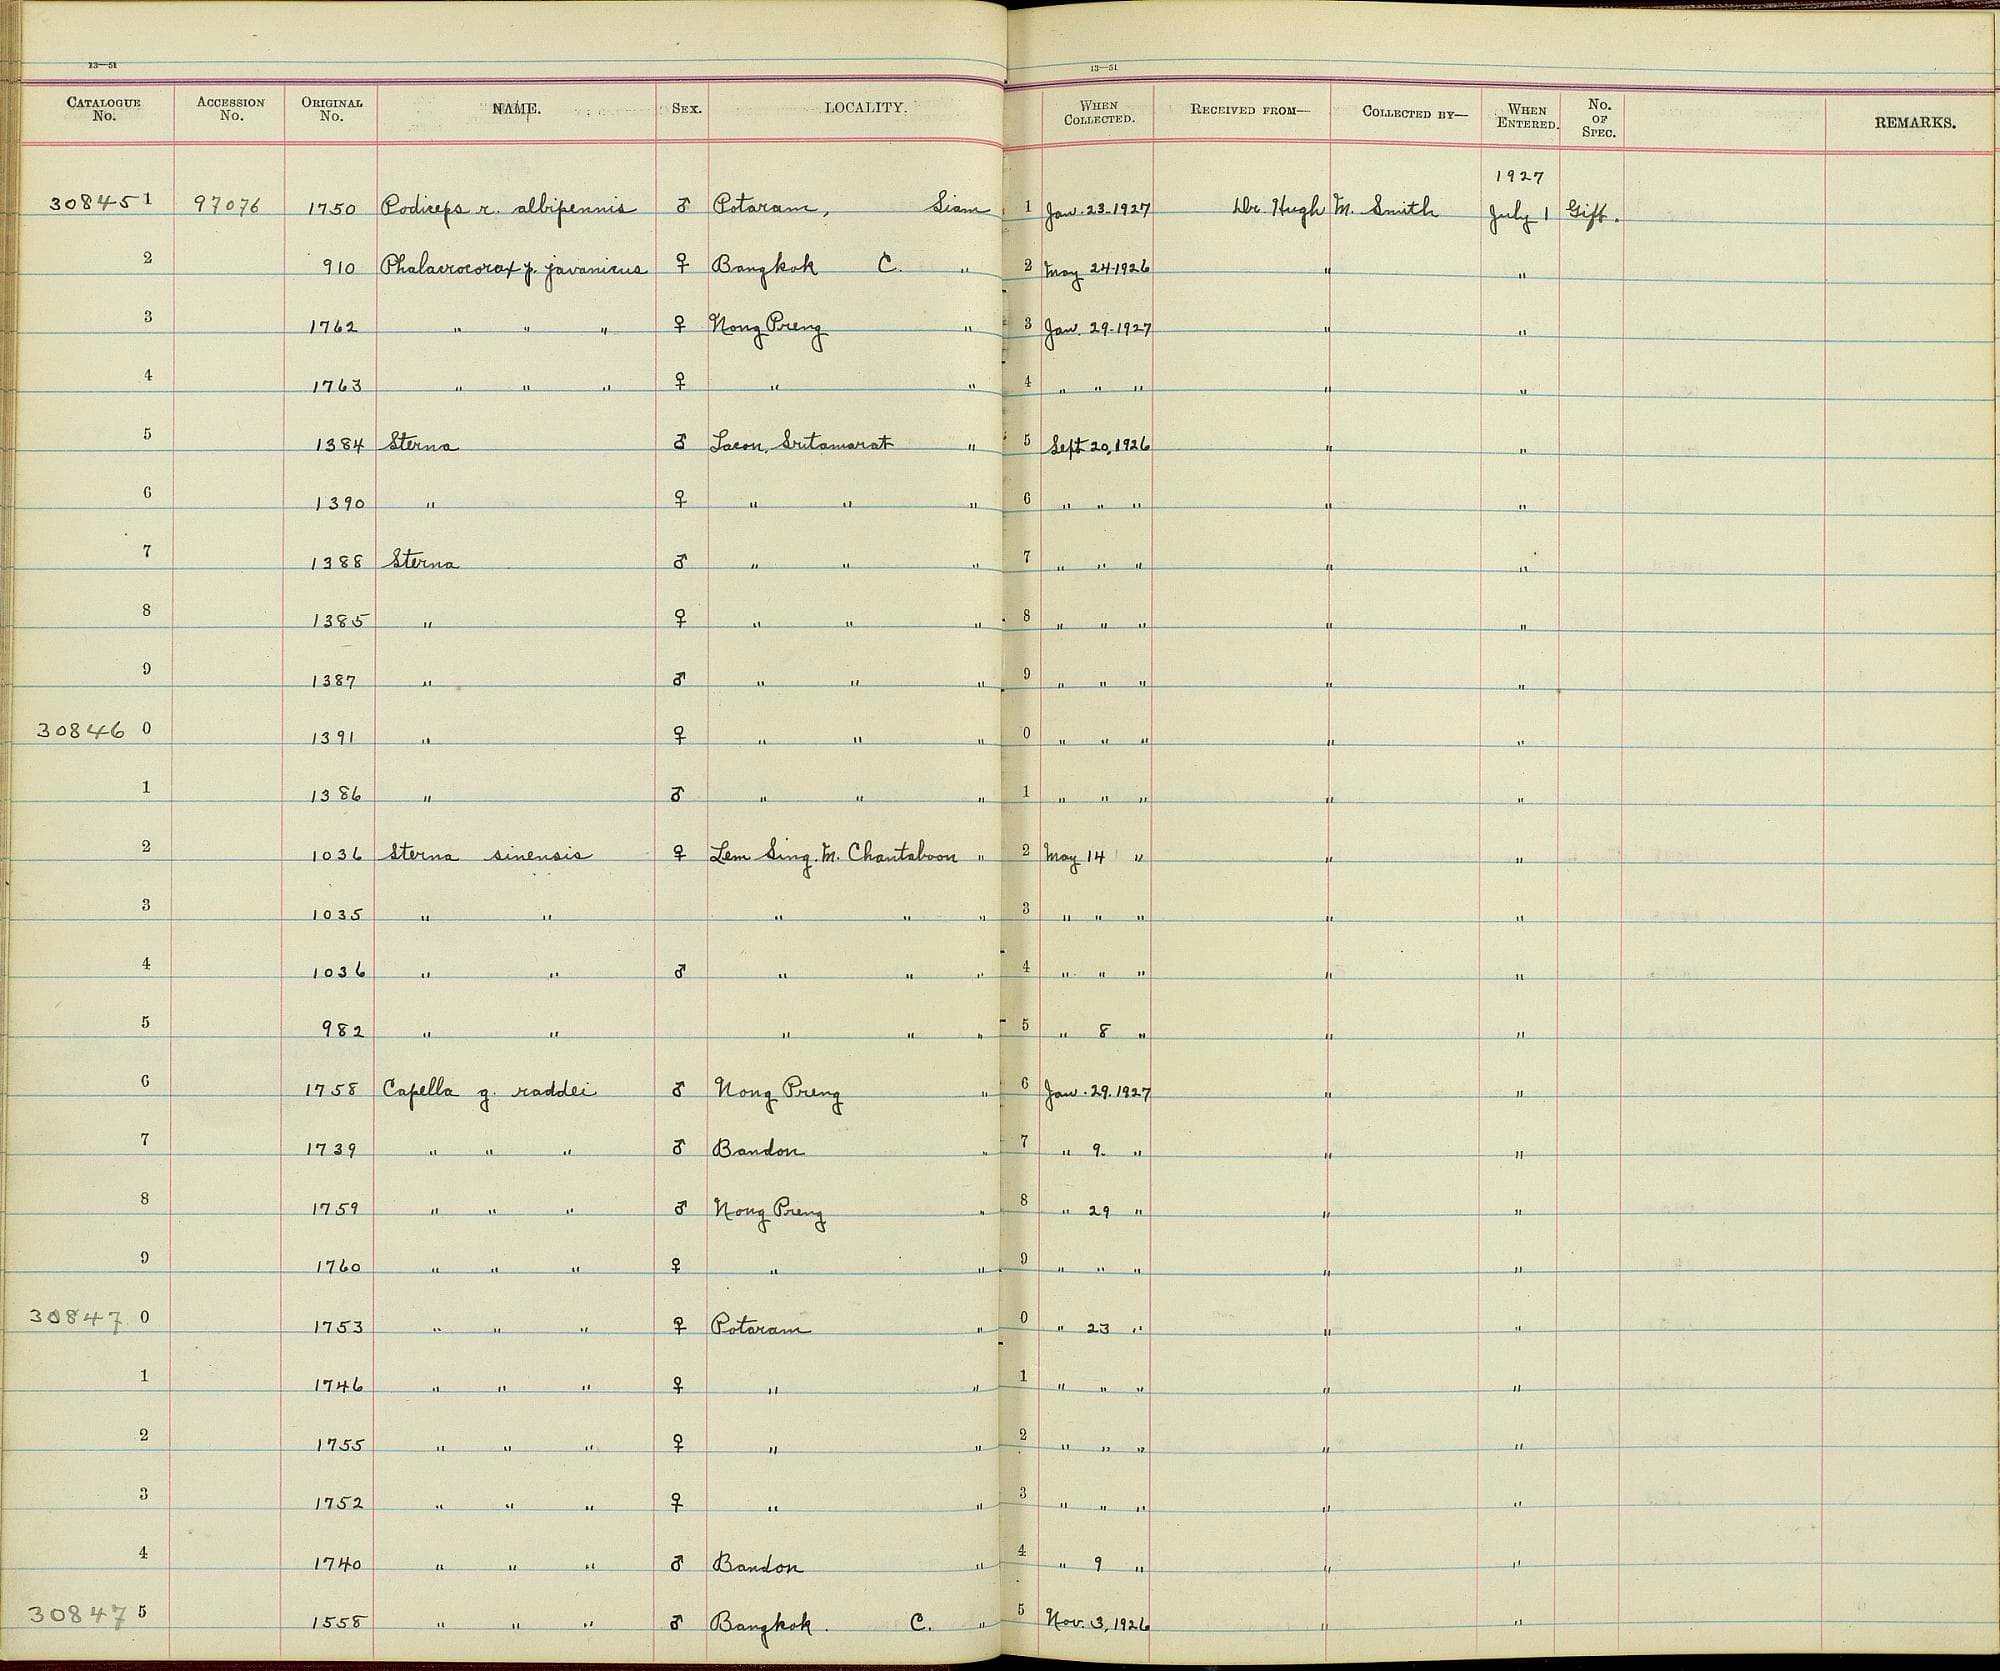 13—51 13—51
CATALOGUE No. ACCESSION No. ORIGINAL No. NAME. SEX. LOCALITY. WHEN COLLECTED. RECEIVED FROM— COLLECTED BY— WHEN ENTERED. No. OF SPEC. REMARKS.
1927
30845 1 97076 1750 Podiceps r. albipennis ♂ Potaram, Siam 1 Jan. 23-1927 Dr. Hugh M. Smith July 1 Gift.
2 910 Phalacrocorax p. javanicus ♀ Bangkok C. " 2 May 24-1926 " "
3 1762 " " " ♀ Nong Preng " 3 Jan. 29-1927 " "
4 1763 " " " ♀ " " 4 " " " " "
5 1384 Sterna ♂ Lacon, Sritamarat " 5 Sept 20, 1926 " "
6 1390 " ♀ " " " 6 " " " " "
7 1388 Sterna ♂ " " " 7 " " " " "
8 1385 " ♀ " " " 8 " " " " "
9 1387 " ♂ " " " 9 " " " " "
30846 0 1391 " ♀ " " " 0 " " " " "
1 1386 " ♂ " " " 1 " " " " "
2 1036 Sterna sinensis ♀ Lem Sing. M. Chantaboon " 2 May 14 " " "
3 1035 " " " " " 3 " " " " "
4 1036 " " ♂ " " " 4 " " " " "
5 982 " " " " " 5 " 8 " " "
6 1758 Capella g. raddei ♂ Nong Preng " 6 Jan. 29. 1927 " "
7 1739 " " " ♂ Bandon " 7 " 9. " " "
8 1759 " " " ♂ Nong Preng " 8 " 29 " " "
9 1760 " " " ♀ " " 9 " " " " "
30847 0 1753 " " " ♀ Potaram " 0 " 23 " " "
1 1746 " " " ♀ " " 1 " " " " "
2 1755 " " " ♀ " " 2 " " " " "
3 1752 " " " ♀ " " 3 " " " " "
4 1740 " " " ♂ Bandon " 4 " 9 " " "
30847 5 1558 " " " ♂ Bangkok. C. " 5 Nov. 3, 1926 " "